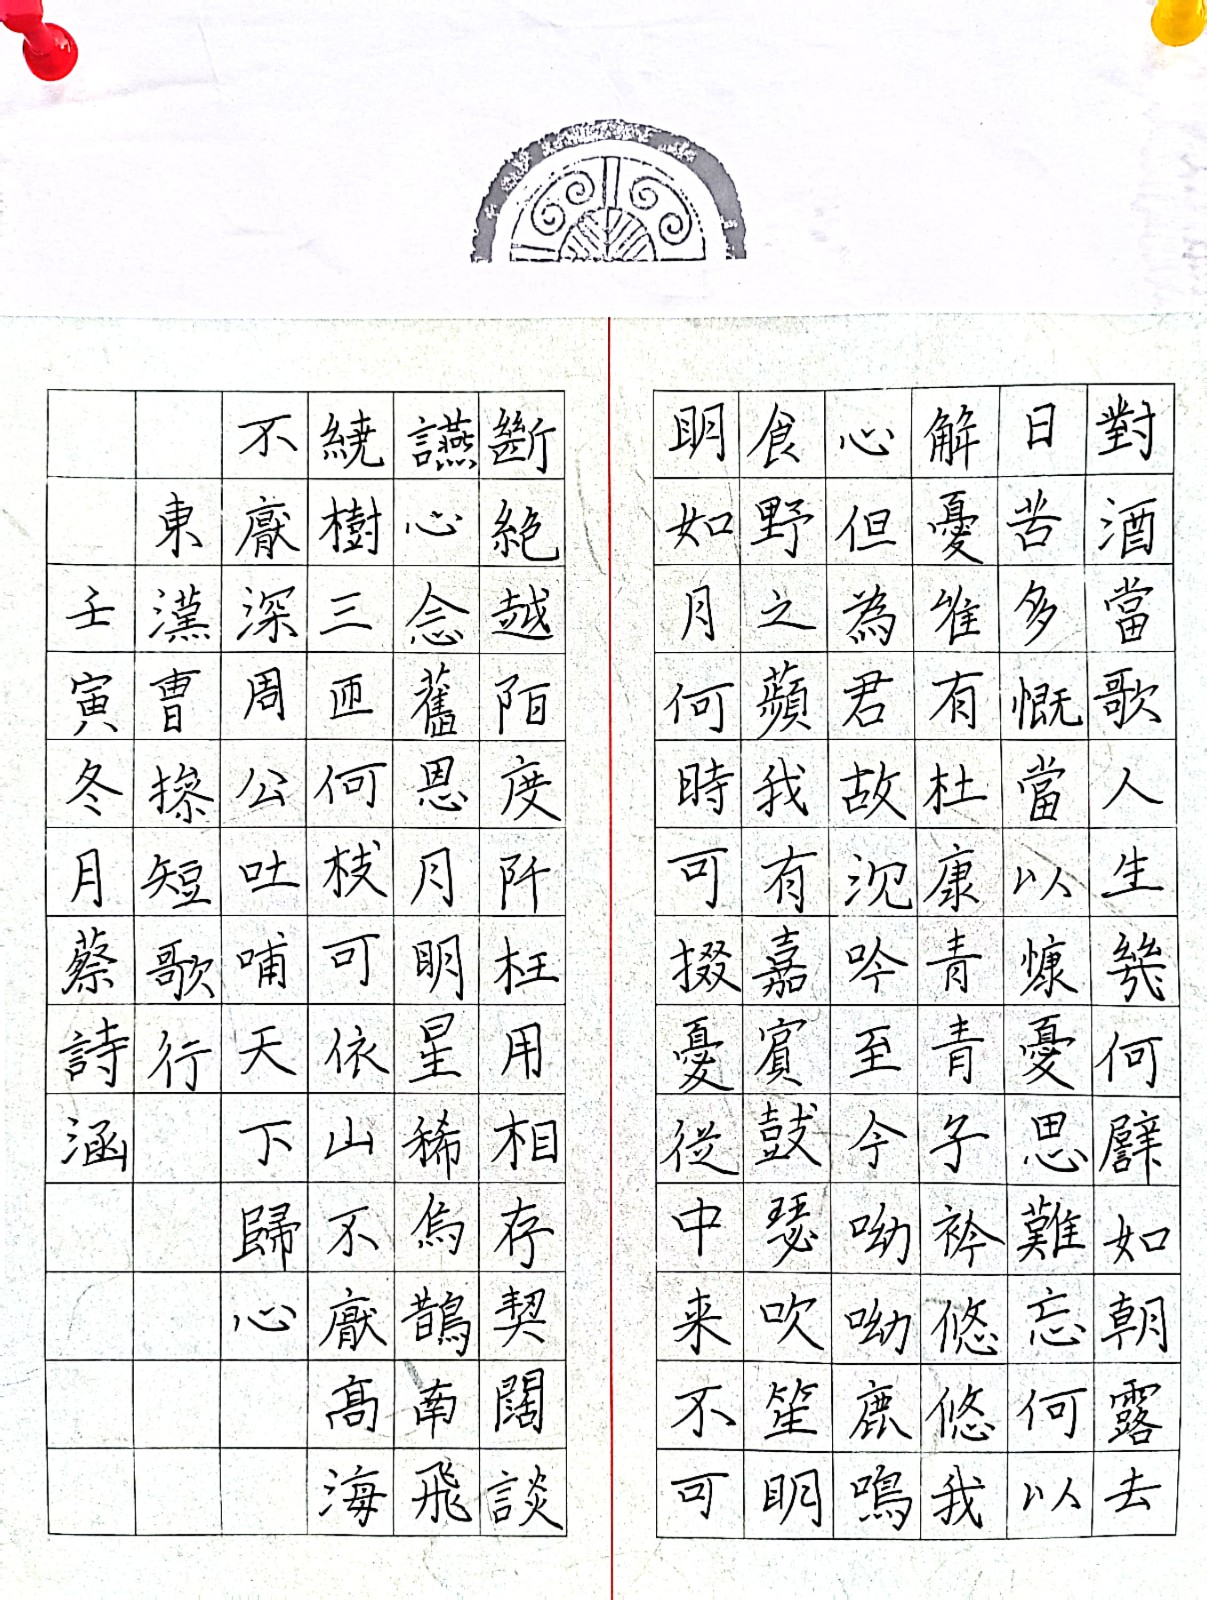 對酒當歌人生幾何譬如朝露去
日苦多慨當以慷憂思難忘何以
解憂唯有杜康青青子衿悠悠我
心但為君故沉吟至今呦呦鹿鳴
食野之蘋我有嘉賓鼓瑟吹笙明
明如月何時可掇憂從中来不可
斷絕越陌度阡枉用相存契闊談
讌心念舊恩月明星稀烏鵲南飛
繞樹三匝何枝可依山不厭高海
不厭深周公吐哺天下歸心
東漢曹操短歌行
壬寅冬月蔡詩涵